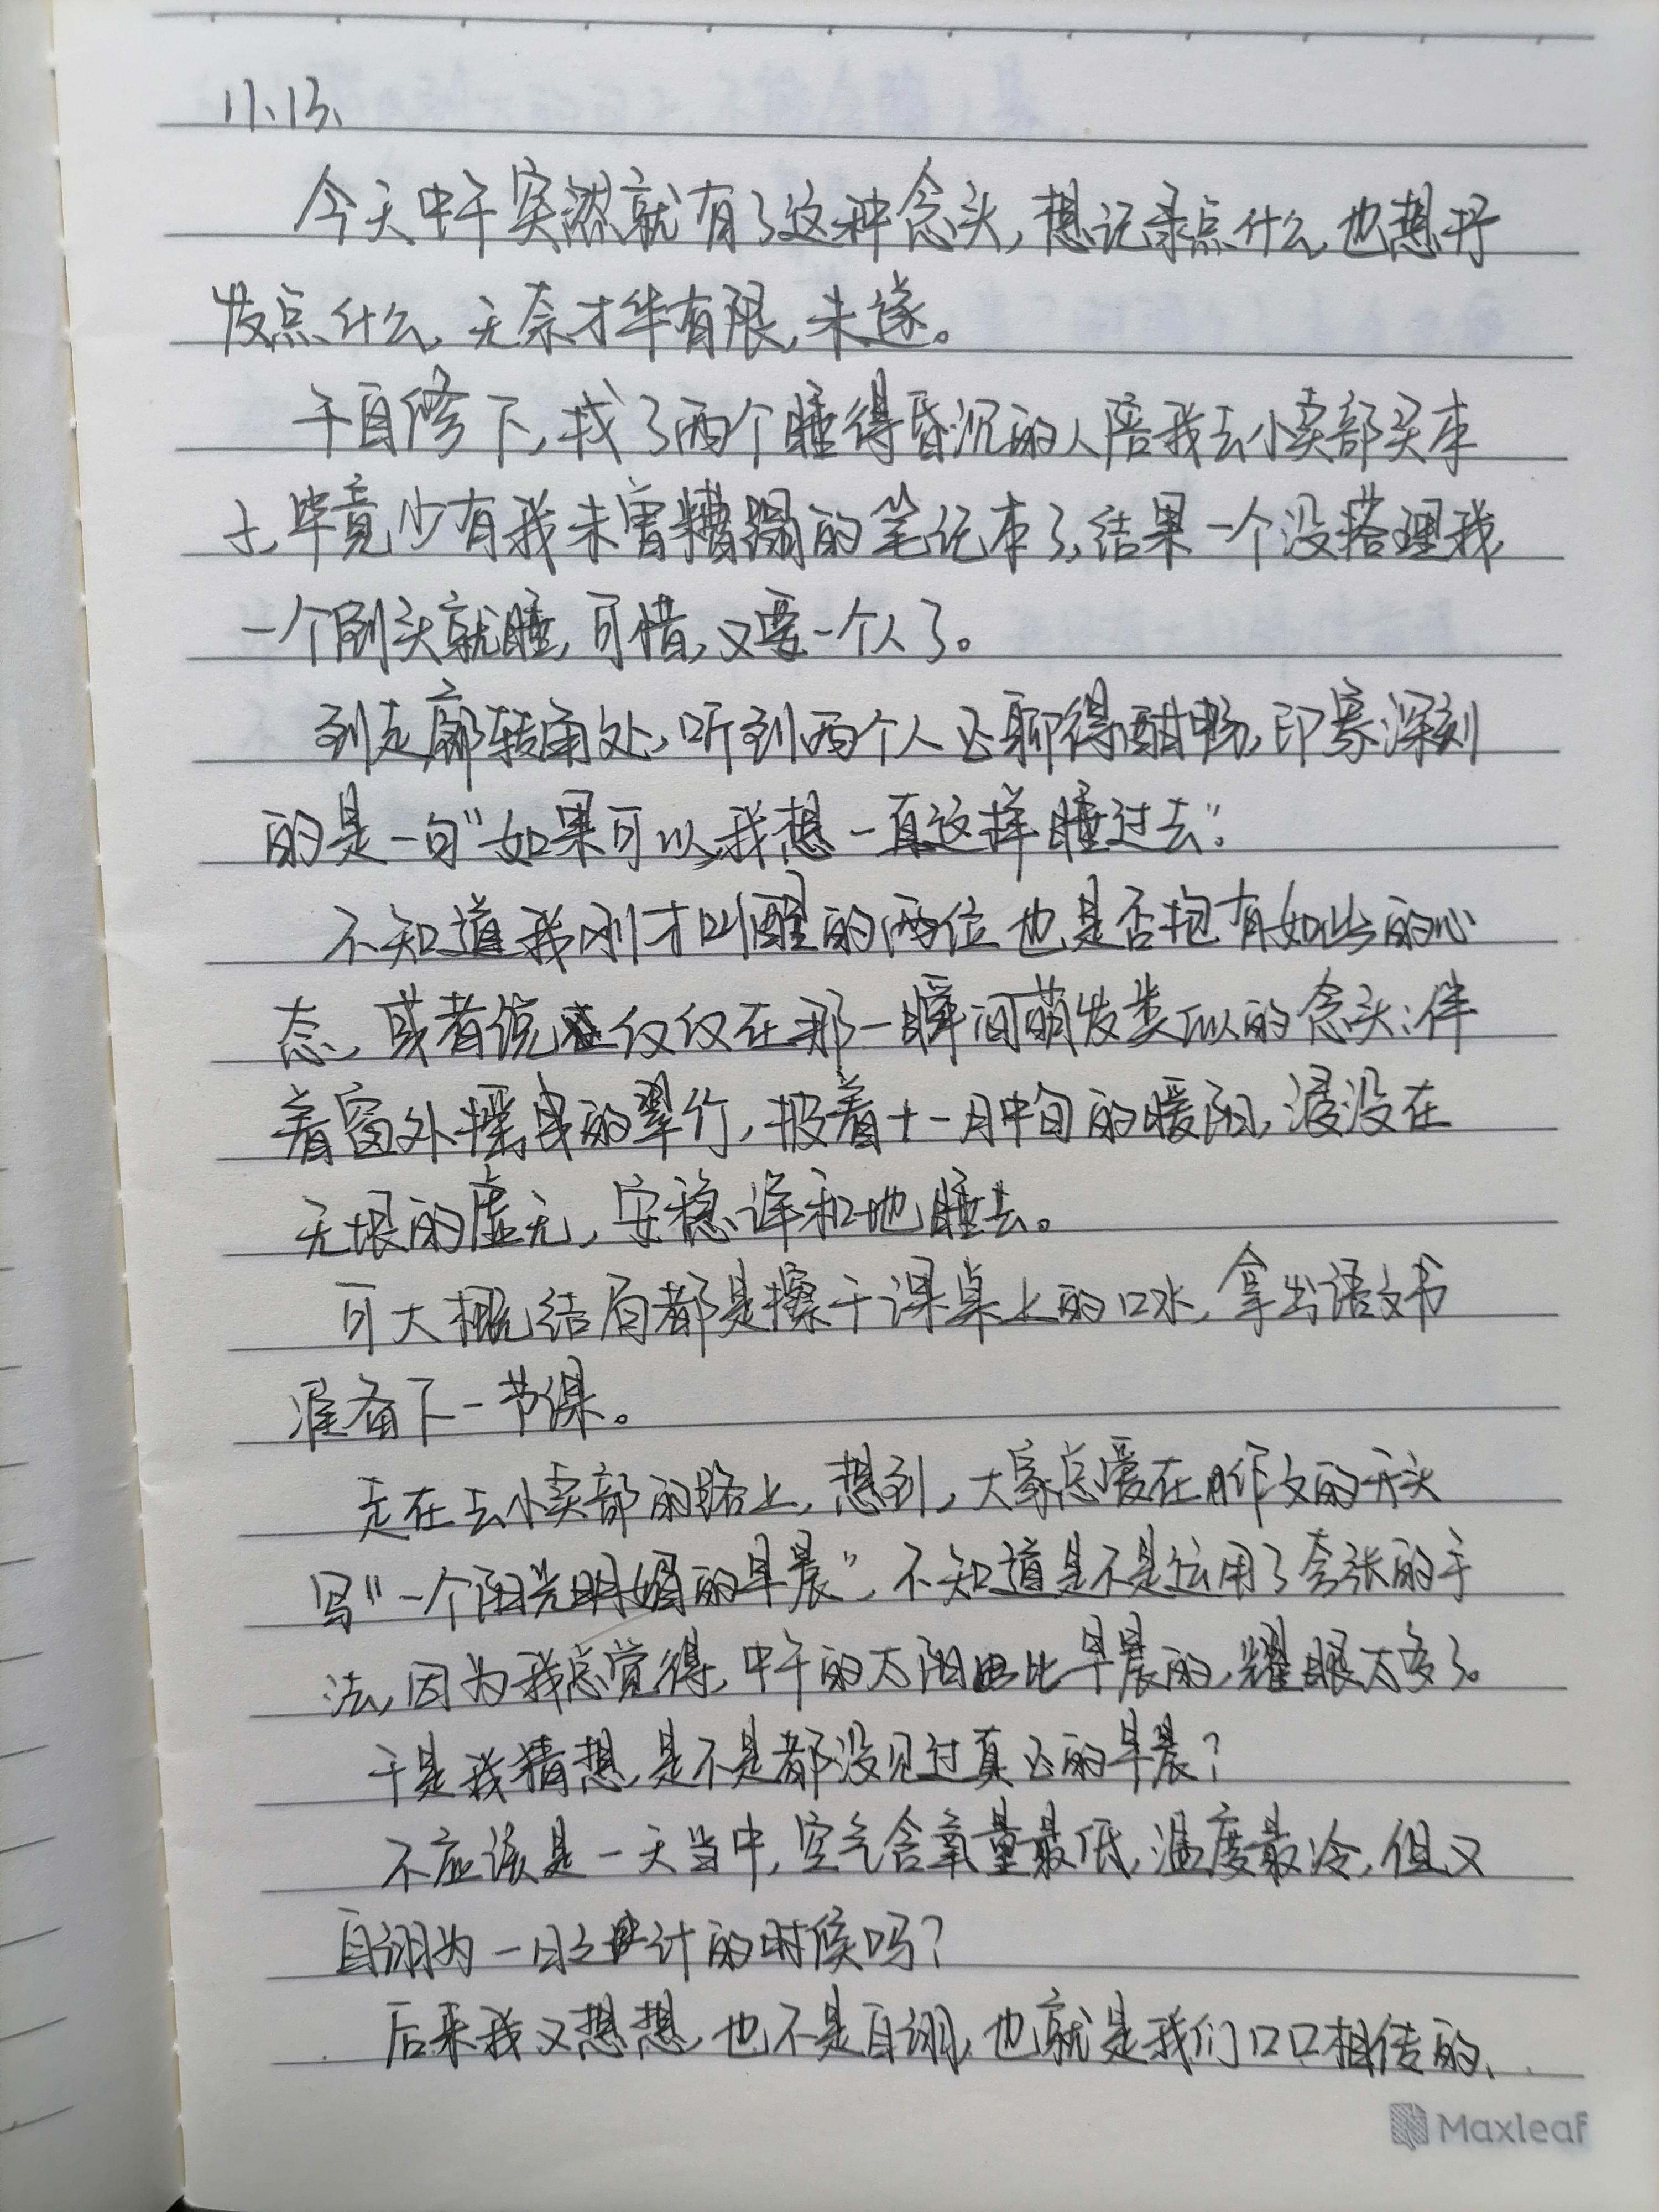 11.13.
今天中午突然就有了这种念头,想记录点什么,也想抒
发点什么,无奈才华有限,未遂。
午自修下,找了两个睡得昏沉的人陪我去小卖部买本
子,毕竟少有我未曾糟蹋的笔记本了,结果一个没搭理我,
一个倒头就睡,可惜,又要一个人了。
到走廊转角处,听到两个人正聊得酣畅,印象深刻
的是一句“如果可以,我想一直这样睡过去”。
不知道我刚才叫醒的两位也是否抱有如此的心
态,或者说仅仅在那一瞬间萌发类似的念头:伴
着窗外摇曳的翠竹,披着十一月中旬的暖阳,浸没在
无垠的虚无,安稳、详和地睡去。
可大概结局都是擦干课桌上的口水,拿出语文书
准备下一节课。
走在去小卖部的路上,想到,大家总爱在作文的开头
写“一个阳光明媚的早晨”,不知道是不是运用了夸张的手
法,因为我总觉得,中午的太阳比早晨的,耀眼太多了。
于是我猜想,是不是都没见过真正的早晨?
不应该是一天当中,空气含氧量最低,温度最冷,但又
自诩为一日之计的时候吗?
后来我又想想,也不是自诩,也就是我们口口相传的、
Maxleaf